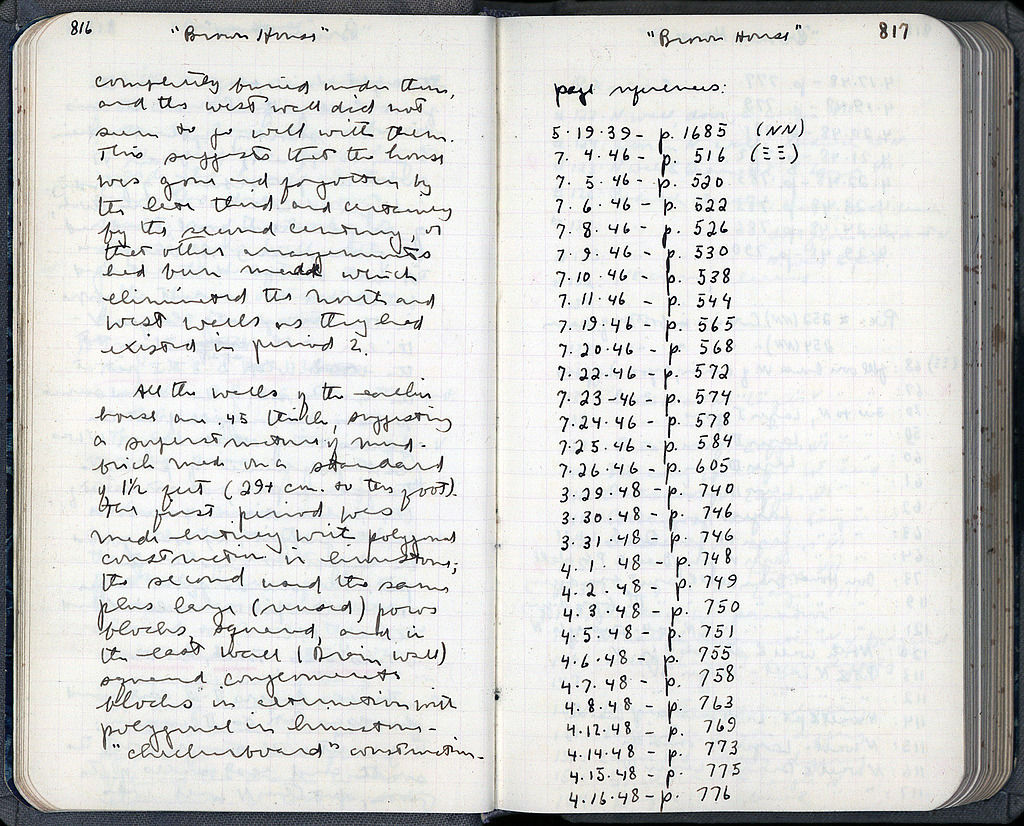 816
"Brown House"
completely buried under them,
and the west wall did not
seem to go well with them.
This suggests that the house
was gone and forgotten by
the late third and certainly
by the second century, or
that other arrangements
had been made which
eliminated the north and
west walls as they had
existed in period 2.
All the walls of the earlier
house are .45 thick, suggesting
a superstructure of mud-
brick made on a standard
of 1½ feet (29+ cm. to the foot).
The first period was
made entirely with polygonal
construction in limestone;
the second used the same
plus large (reused) poros
blocks, squared, and in
the east wall (Drain wall)
squared conglomerate
blocks in alternation with
polygonal in limestone -
"checkerboard" construction.
"Brown House"
817
page references:
5.19.39 - p. 1685 (NN)
7. 4. 46 - p. 516 (ΞΞ)
7. 5. 46 - p. 520
7. 6. 46 - p. 522
7. 8. 46 - p. 526
7. 9. 46 - p. 530
7. 10. 46 - p. 538
7. 11. 46 - p. 544
7. 19. 46 - p. 565
7. 20. 46 - p. 568
7. 22. 46 - p. 572
7. 23 - 46 - p. 574
7. 24. 46 - p. 578
7. 25. 46 - p. 584
7. 26. 46 - p. 605
3. 29. 48 - p. 740
3. 30. 48 - p. 746
3. 31. 48 - p. 746
4. 1. 48 - p. 748
4. 2. 48 - p. 749
4. 3. 48 - p. 750
4. 5. 48 - p. 751
4. 6. 48 - p. 755
4. 7. 48 - p. 758
4. 8. 48 - p. 763
4. 12. 48 - p. 769
4. 14. 48 - p. 773
4. 15. 48 - p. 775
4. 16. 48 - p. 776